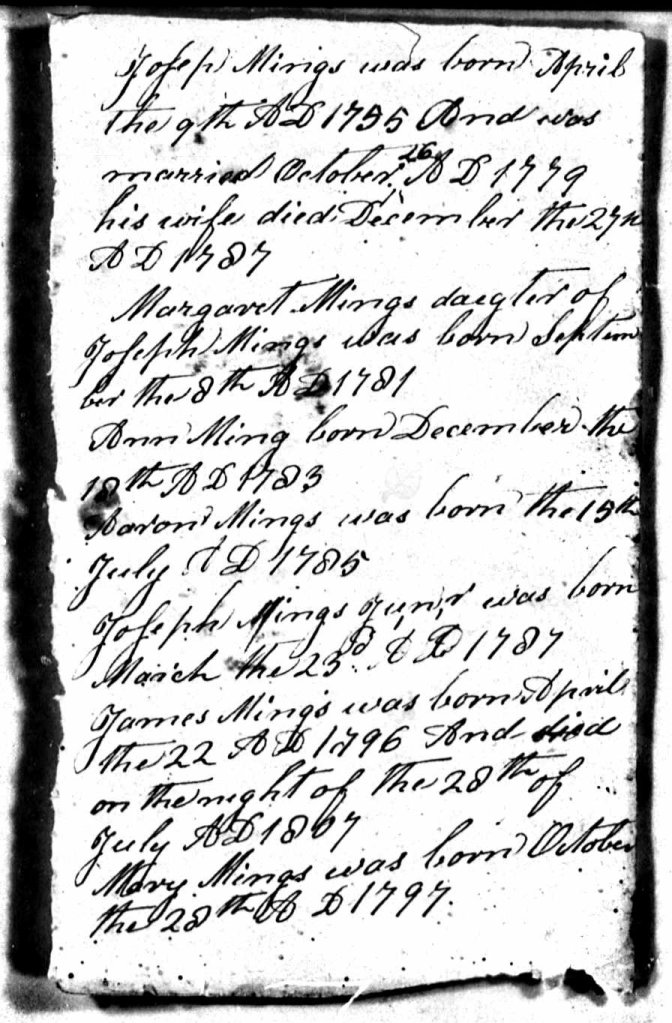 Joseph Mings was born April
the 9th AD 1755 And was
married October, 26 AD 1779
his wife died December the 27th
AD 1787
Margaret Mings daegter of
Joseph Mings was born Septem
ber the 8th AD 1781
Ann Ming born December the
18th AD 1783
Aaron Mings was born the 15th
July AD 1785
Joseph Mings Jun,r was born
March the 23d AD 1787
James Mings was born April
the 22 AD 1796 And died
on the night of the 28th of
July AD 1807
Mary Mings was born October
the 28th AD 1797.